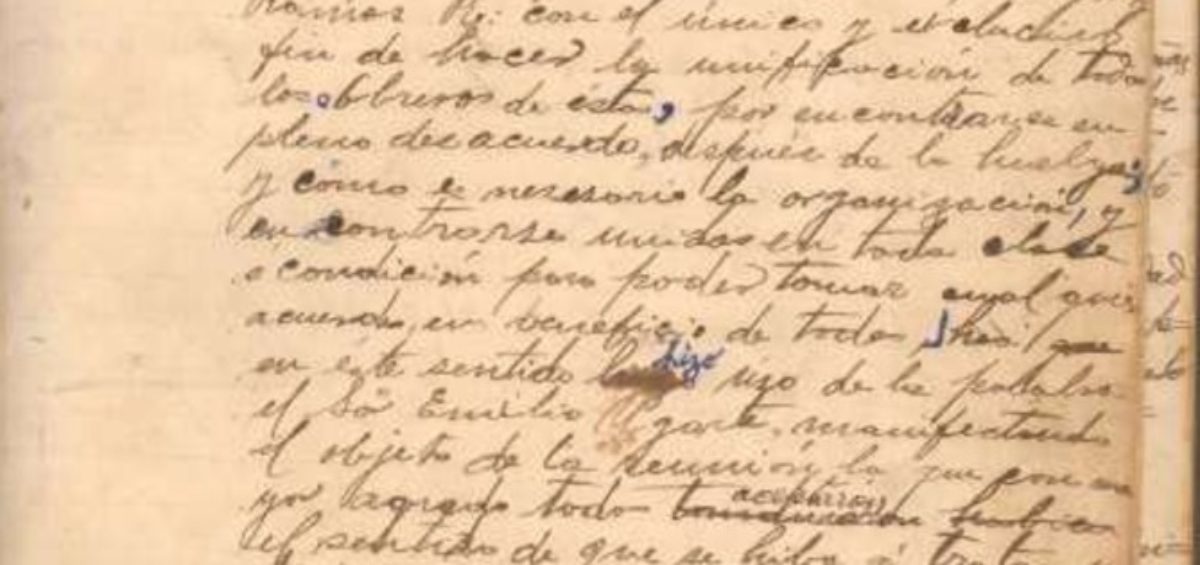 Ramos R. con el único y exclusivo
fin de hacer la unificación de todos
los obbreros de ésta, por encontrarse en
pleno desacuerdo, después de la huelga;
y cómo es nesesario la organización, y
encontrarse unidos en toda clase
o condición para poder tomar cual quier
acuerdo, en beneficio de todos
en este sentido hizo uzo de la palabra
el Sõr Emilio Ugarte, manifestando
el objeto de la reunión, la que con ma
yor agrado todo aceptaron
el sentido de que se hiba á tratar